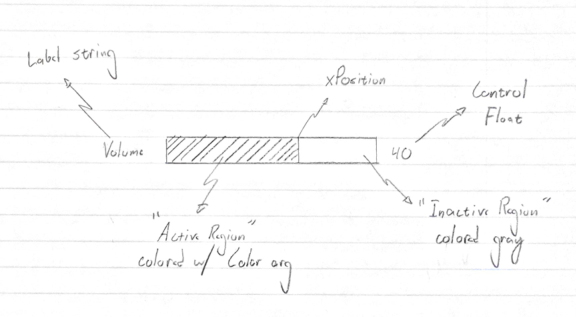 Label string
xPosition
Control
Float
Volume
40
"Active Region"
colored w/ Color arg
"Inactive Region"
colored gray